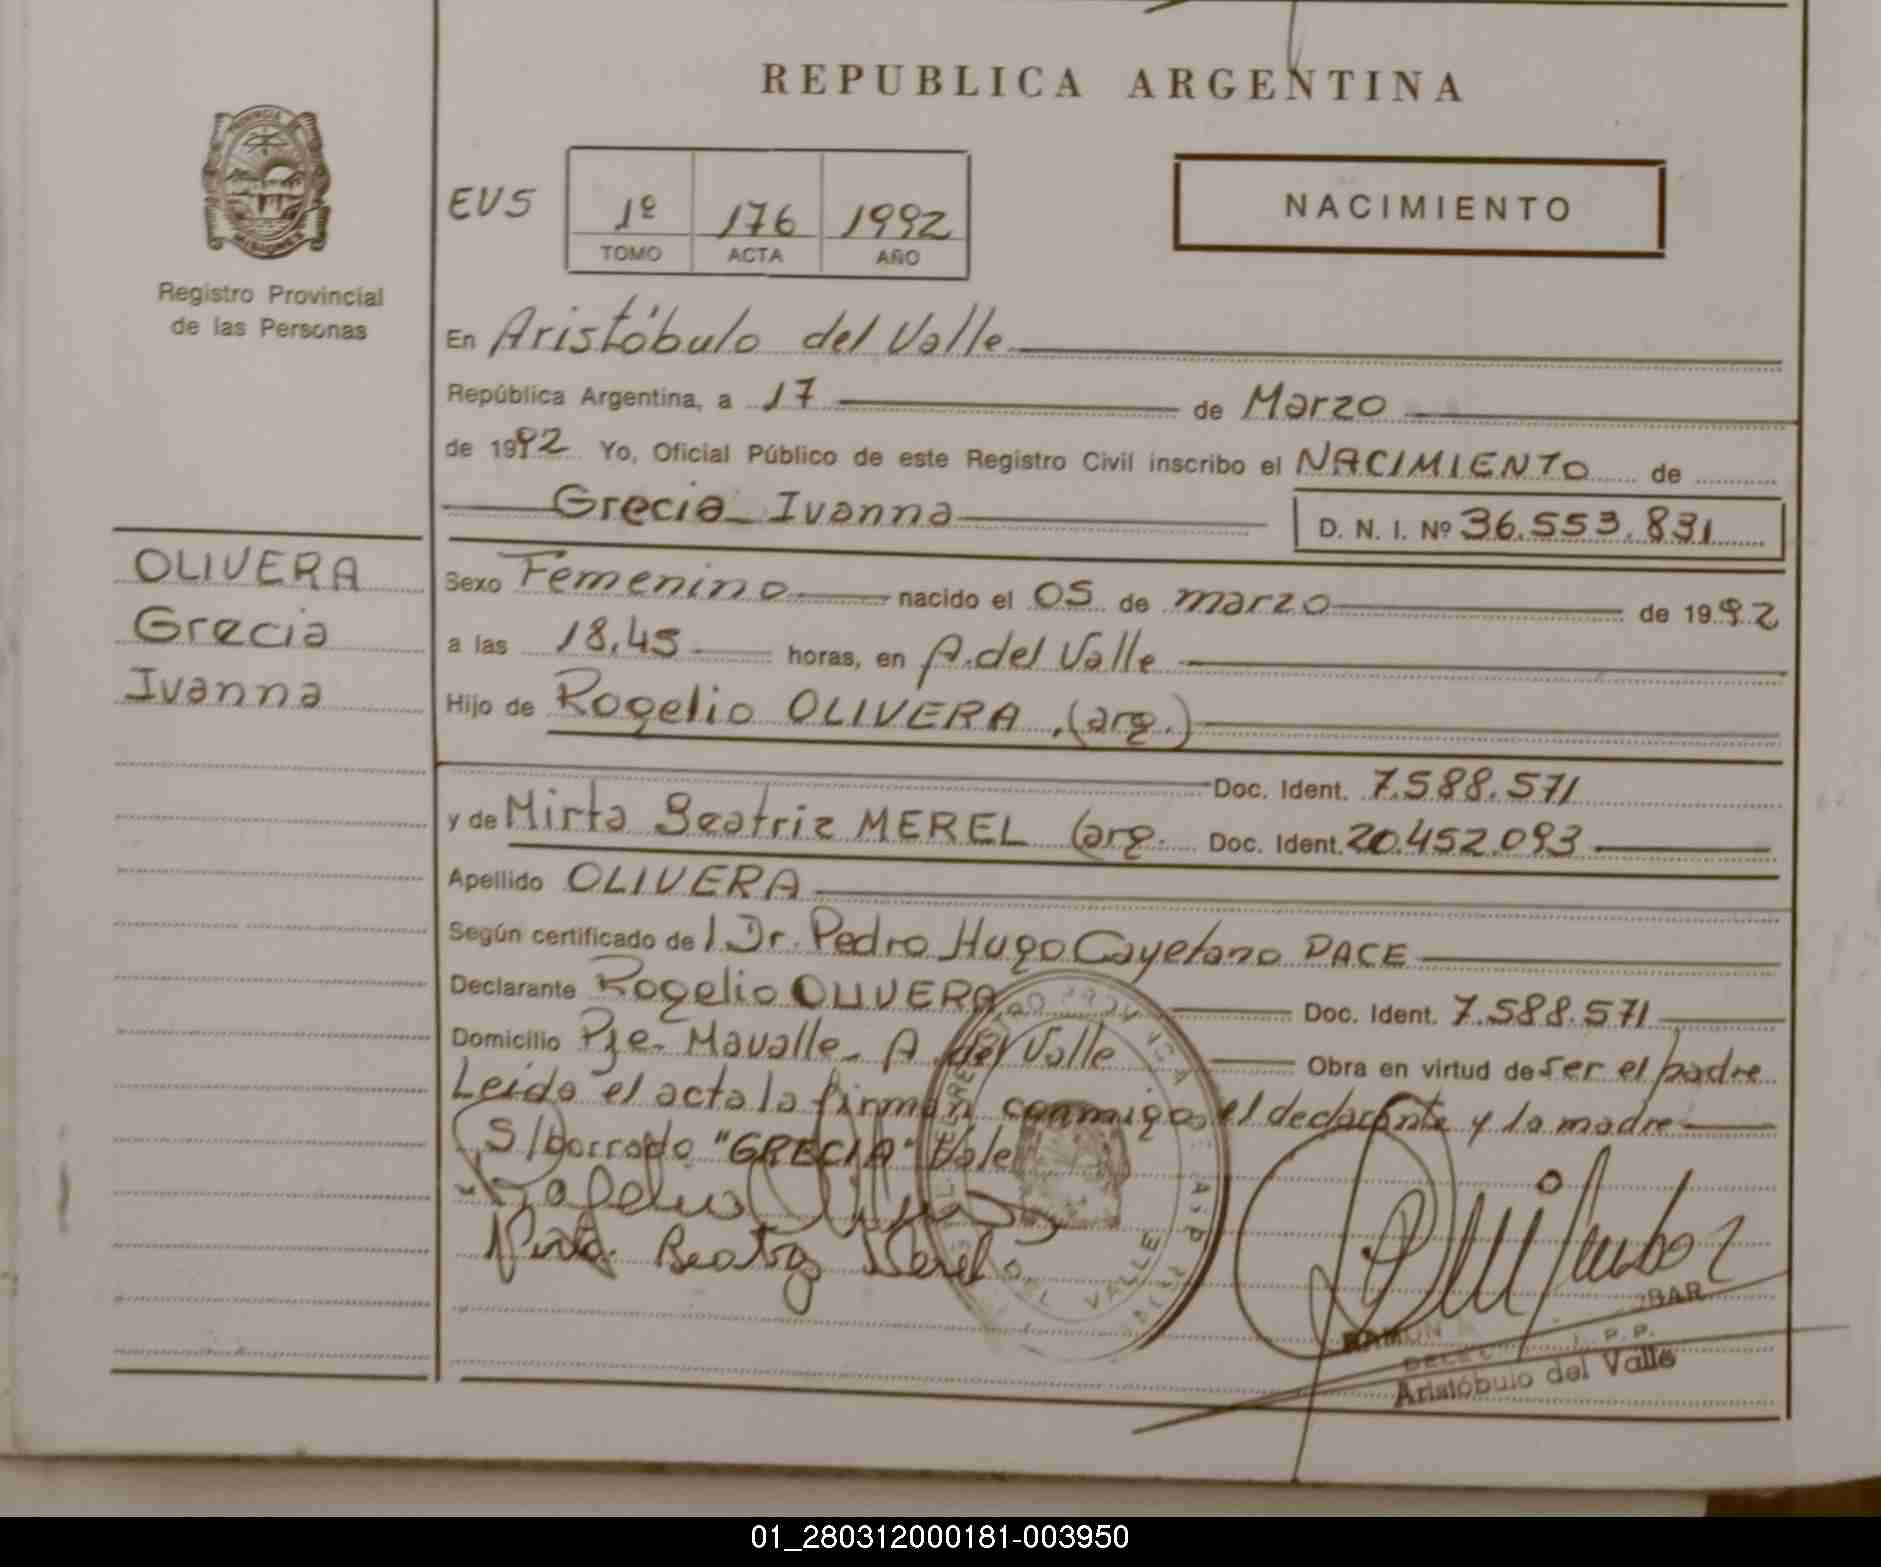 REPUBLICA ARGENTINA
PROVINCIA
MISIONES
Registro Provincial
de las Personas
EUS
1º 176 1992
TOMO ACTA AÑO
NACIMIENTO
En Aristóbulo del Valle
República Argentina, a 17 de Marzo
de 1992 Yo, Oficial Público de este Registro Civil inscribo el NACIMIENTO de
Grecia Ivanna D. N. I. Nº 36.553.831
OLIVERA
Grecia
Ivanna
Sexo Femenino nacido el 05 de marzo de 1992
a las 18,45 horas, en A. del Valle
Hijo de Rogelio OLIVERA, (arg.)
Doc. Ident. 7.588.571
y de Mirta Beatriz MEREL (arg. Doc. Ident. 20.452.093
Apellido OLIVERA
Según certificado del Dr. Pedro Hugo Cayetano PACE
Declarante Rogelio OLIVERA Doc. Ident. 7.588.571
Domicilio Pje. Mavalle - A. del Valle Obra en virtud de ser el padre
Leída el acta la firman conmigo, el declarante y la madre
S/borrado "GRECIA" Vale
Rogelio
Mirta Beatriz Merel
DEL VALLE
RAMON BAR
R. P. P.
Aristóbulo del Valle
01_280312000181-003950